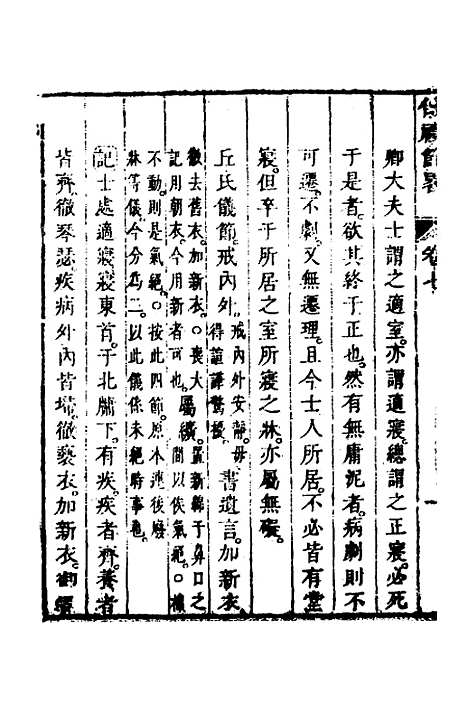 儀禮節畧
卷七
一
卿大夫士謂之適室。亦謂適寢。總謂之正寢。必死
于是者。欲其終于正也。然有無庸泥者。病劇則不
可遷。不劇又無遷理。且今士人所居。不必皆有堂
寢。但卒于所居之室所寢之牀。亦屬無礙。
丘氏儀節。戒內外。戒內外安靜。毋得諠譁驚擾。書遺言。加新衣。
徹去舊衣。加新衣。○喪大記用朝衣。今用新者可也。屬纊。置新綿于鼻口之間以俟氣絕。○纊
不動。則是氣絕。○按此四節。原本連後廢牀等儀。今分爲二。以此係未絕時事也。
記士處適寢。寢東首。于北牖下。有疾。疾者齊。養者
皆齊。徹琴瑟。疾病外內皆埽。徹褻衣。加新衣。御者